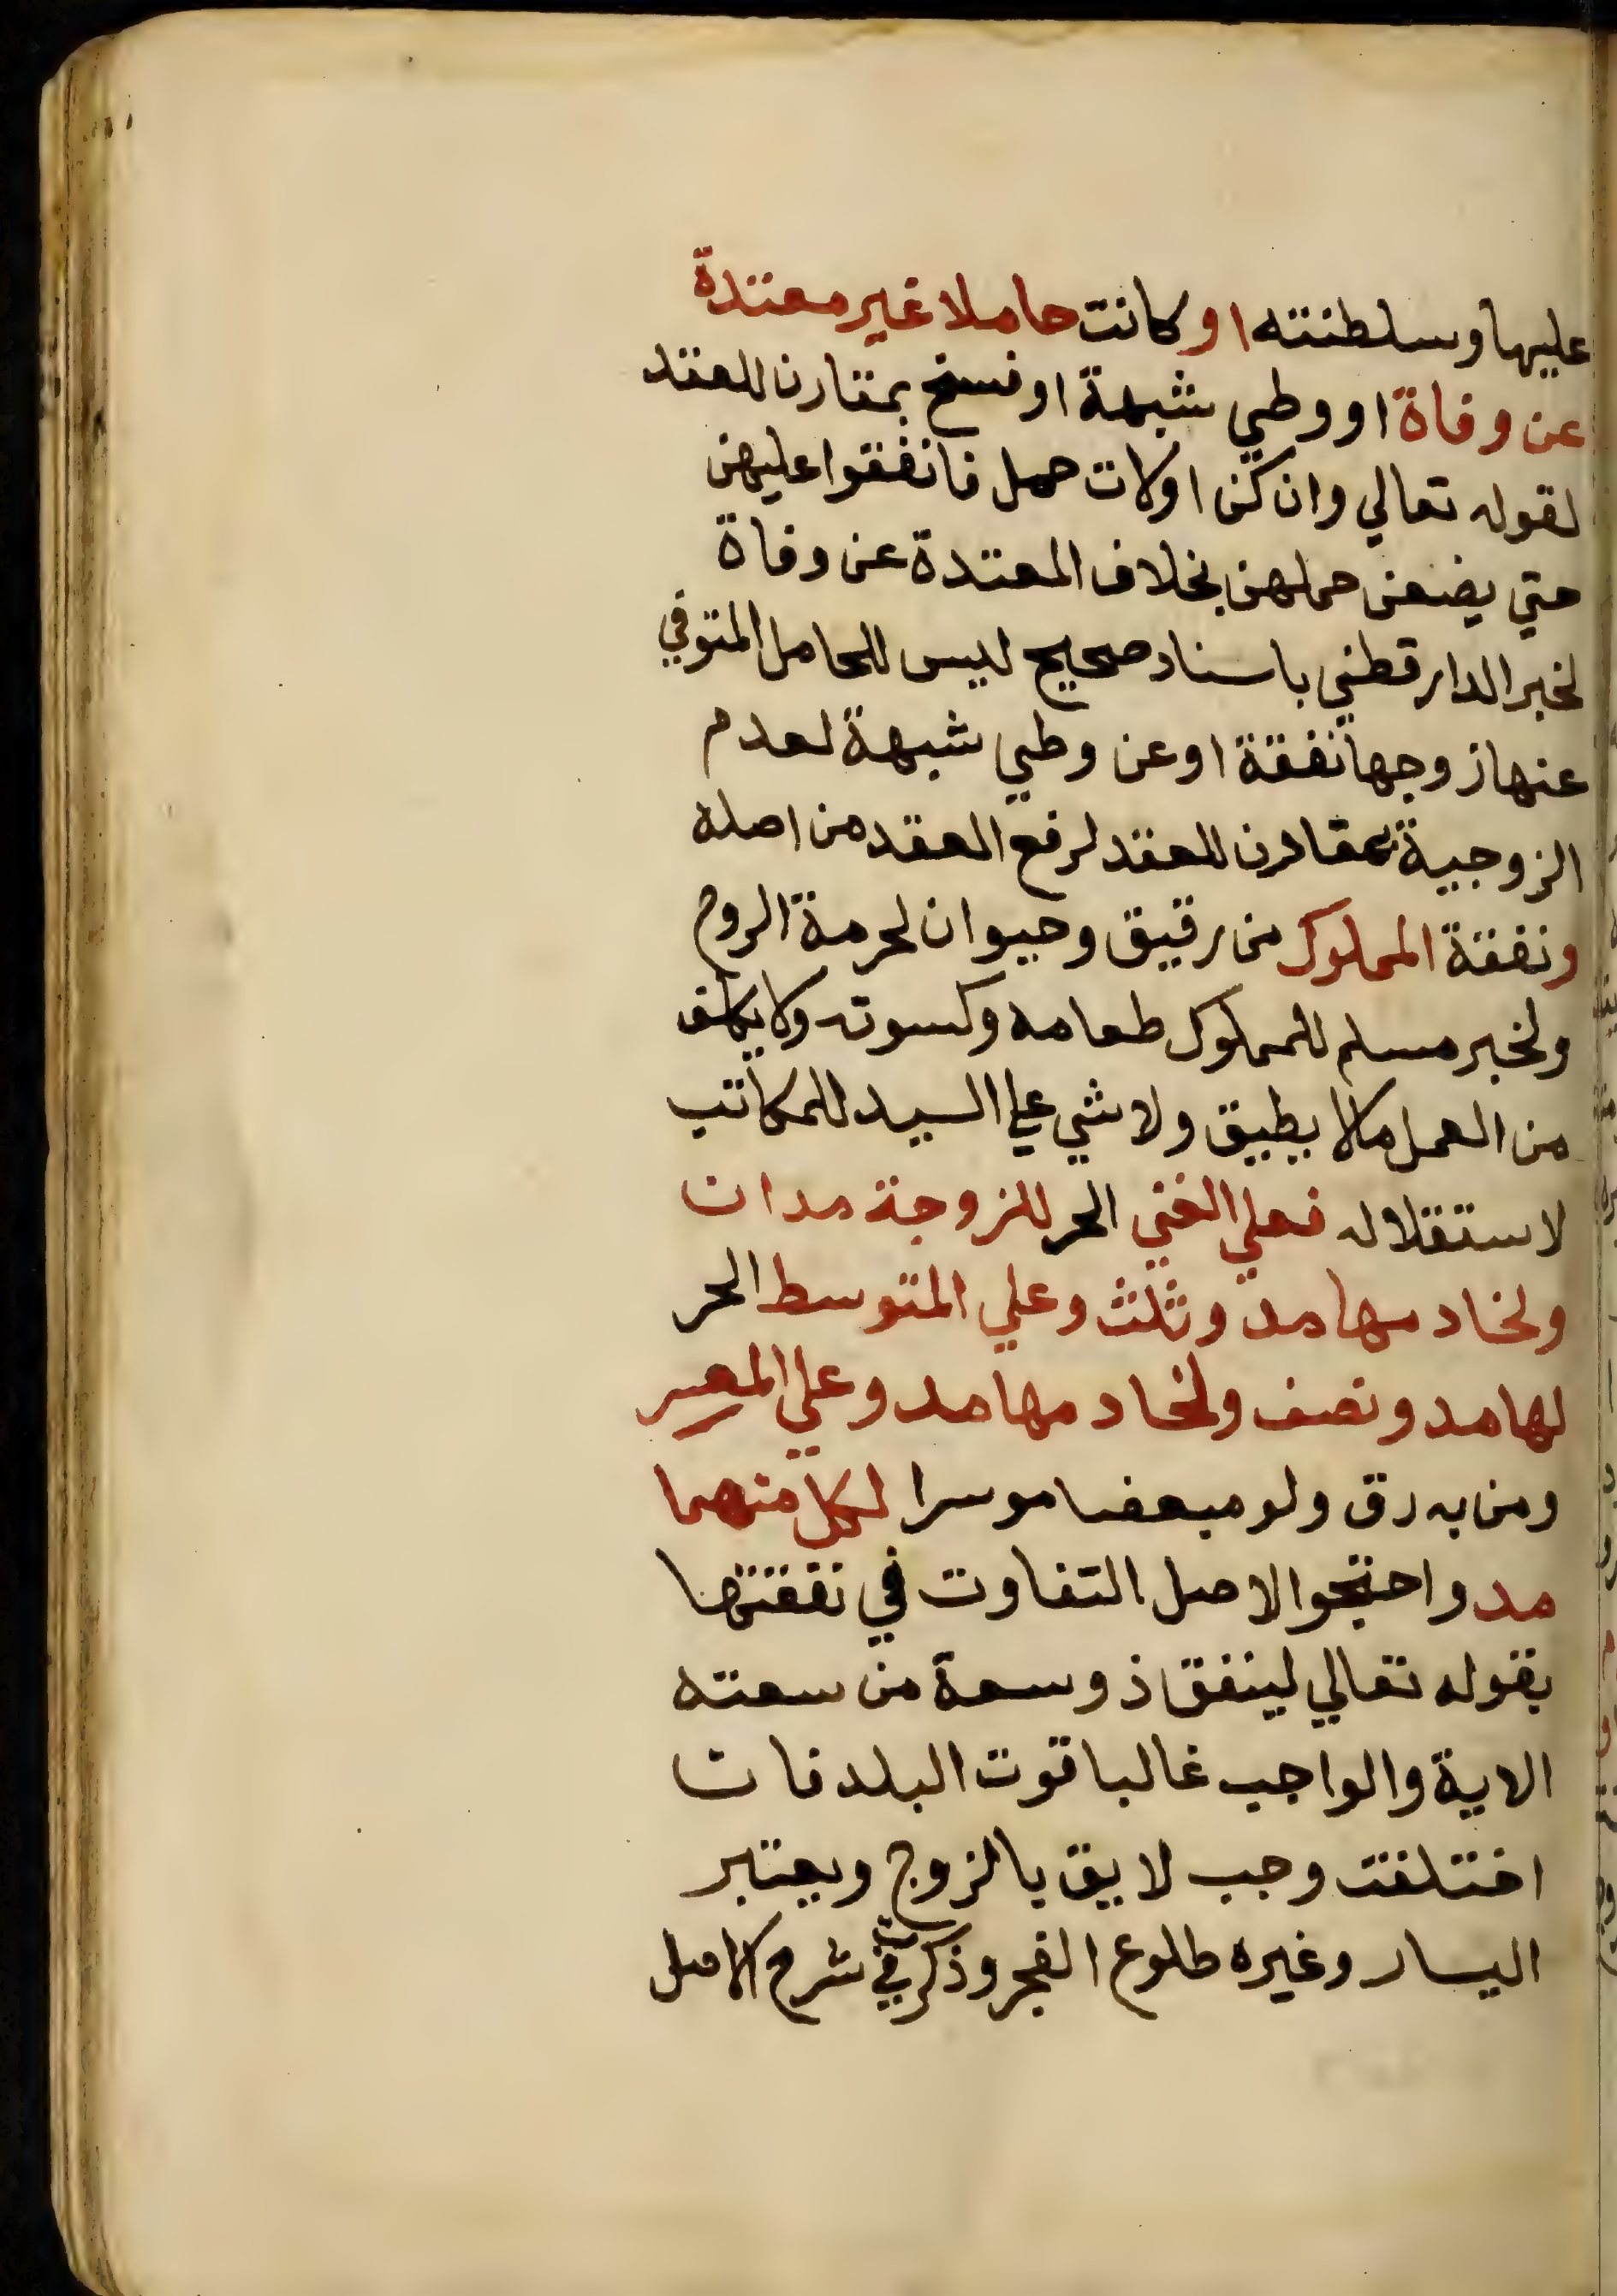 عليها وسلطنته او كانت حاملا غير معتدة
عن وفاة او وطي شبهة او فسخ بمقارن للعقد
لقوله تعالي وان كن اولات حمل فانفقوا عليهن
حتي يضعن حملهن بخلاف المعتدة عن وفاة
لخبر الدارقطني باسناد صحيح ليس للحامل المتوفي
عنها زوجها نفقة او عن وطي شبهة لعدم
الزوجية بمقارن للعقد لرفع العقد من اصله
ونفقة المملوك من رقيق وحيوان لحرمة الروح
ولخبر مسلم للمملوك طعامه وكسوته ولا يكلف
من العمل مالا يطيق ولا شي علي السيد للمكاتب
لاستقلاله فعلي الغني الحر للزوجة مدان
ولخادمها مد وثلث وعلي المتوسط الحر
لها مد ونصف ولخادمها مد وعلي المعسر
ومن به رق ولو مبعضا موسرا لكل منهما
مد واحتجوا لاصل التفاوت في نفقتها
بقوله تعالي لينفق ذو سعة من سعته
الاية والواجب غالبا قوت البلد فان
اختلفت وجب لايق بالزوج ويعتبر
اليسار وغيره طلوع الفجر وذكرت في شرح الاصل